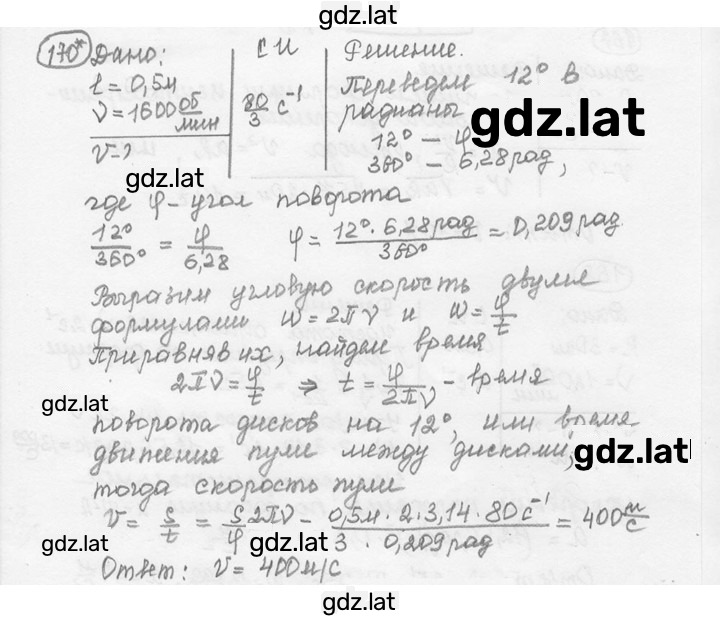 gdz.lat
170* Дано: СИ Решение.
ℓ = 0,5м Переведем 12° в
ν = 1600 об/мин 80/3 с⁻¹ радианы
gdz.lat
12° – φ
v - ? 360° – 6,28 рад,
gdz.lat gdz.lat
где φ - угол поворота
12°/360° = φ/6,28 φ = 12°·6,28рад/360° = 0,209 рад.
Выразим угловую скорость двумя
формулами ω = 2πν и ω = φ/t
Приравняв их, найдем время
2πν = φ/t ⇒ t = φ/2πν - время
gdz.lat gdz.lat
поворота дисков на 12°, или время
движения пули между дисками,
gdz.lat
тогда скорость пули
v = s/t = s2πν/φ = 0,5м·2·3,14·80с⁻¹/3·0,209рад = 400 м/с
gdz.lat gdz.lat
Ответ: v = 400 м/с
gdz.lat